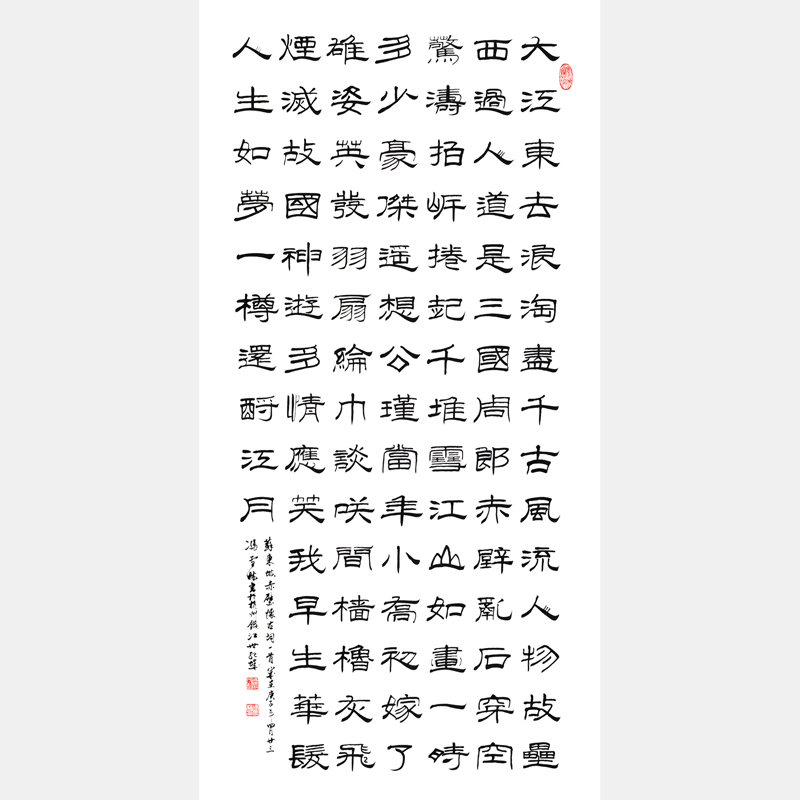 大江東去浪淘盡千古風流人物故壘
西過人道是三國周郎赤壁亂石穿空
驚濤拍岸捲起千堆雪江山如畫一時
多少豪傑遥想公瑾當年小喬初嫁了
雄姿英發羽扇綸巾談咲間檣櫓灰飛
煙滅故國神遊多情應笑我早生華髮
人生如夢一樽還酹江月
蘇東坡赤壁懷古詞一首歲在庚子年四月廿三
馮雪書於杭州錢江世紀